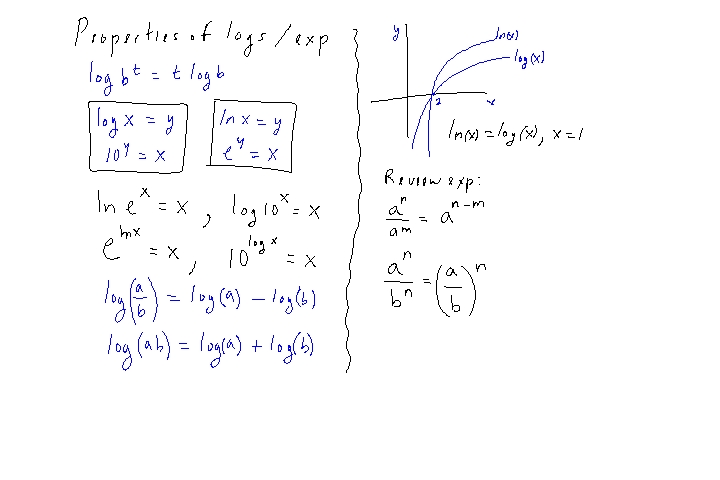 Properties of logs / exp
log b^t = t log b
log x = y
10^y = x
ln x = y
e^y = x
ln e^x = x , log 10^x = x
e^lnx = x , 10^log x = x
log(a/b) = log(a) - log(b)
log(ab) = log(a) + log(b)
y
ln(x)
log(x)
2
x
ln(x) = log(x), x = 1
Review exp:
a^n/a^m = a^n-m
a^n/b^n = (a/b)^n